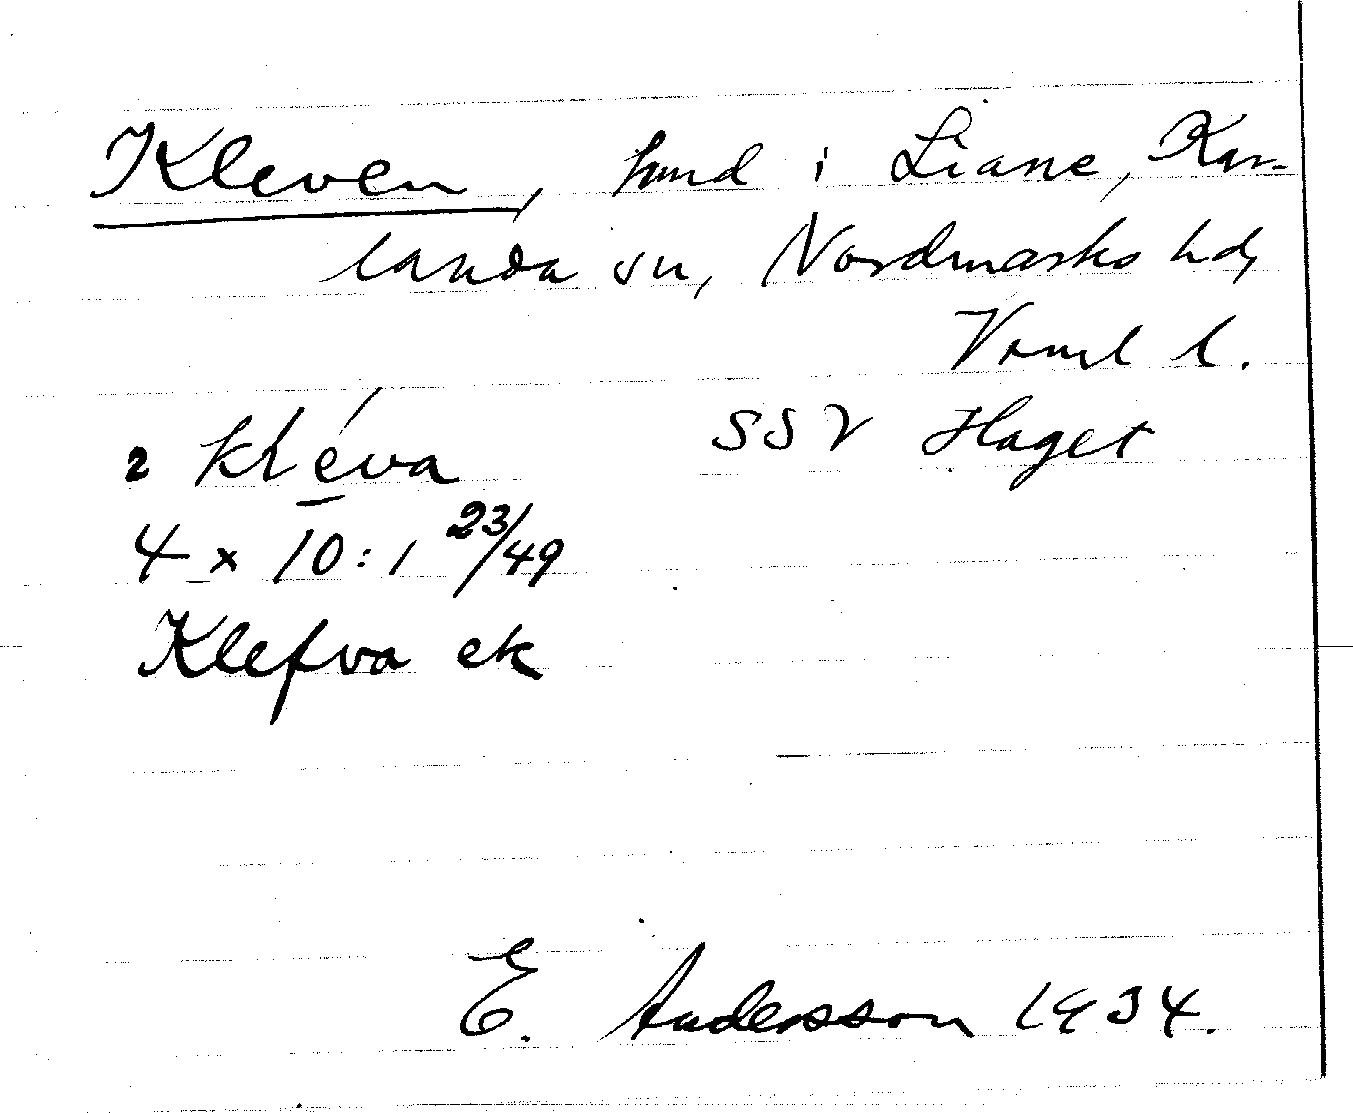 Kleven, hmd i Liane, Kar-
landa sn, Nordmarks hd,
Vrml l.
2 kléva SSV Haget
4 x 10:1 23/49
Klefva ek
E. Andersson 1934.